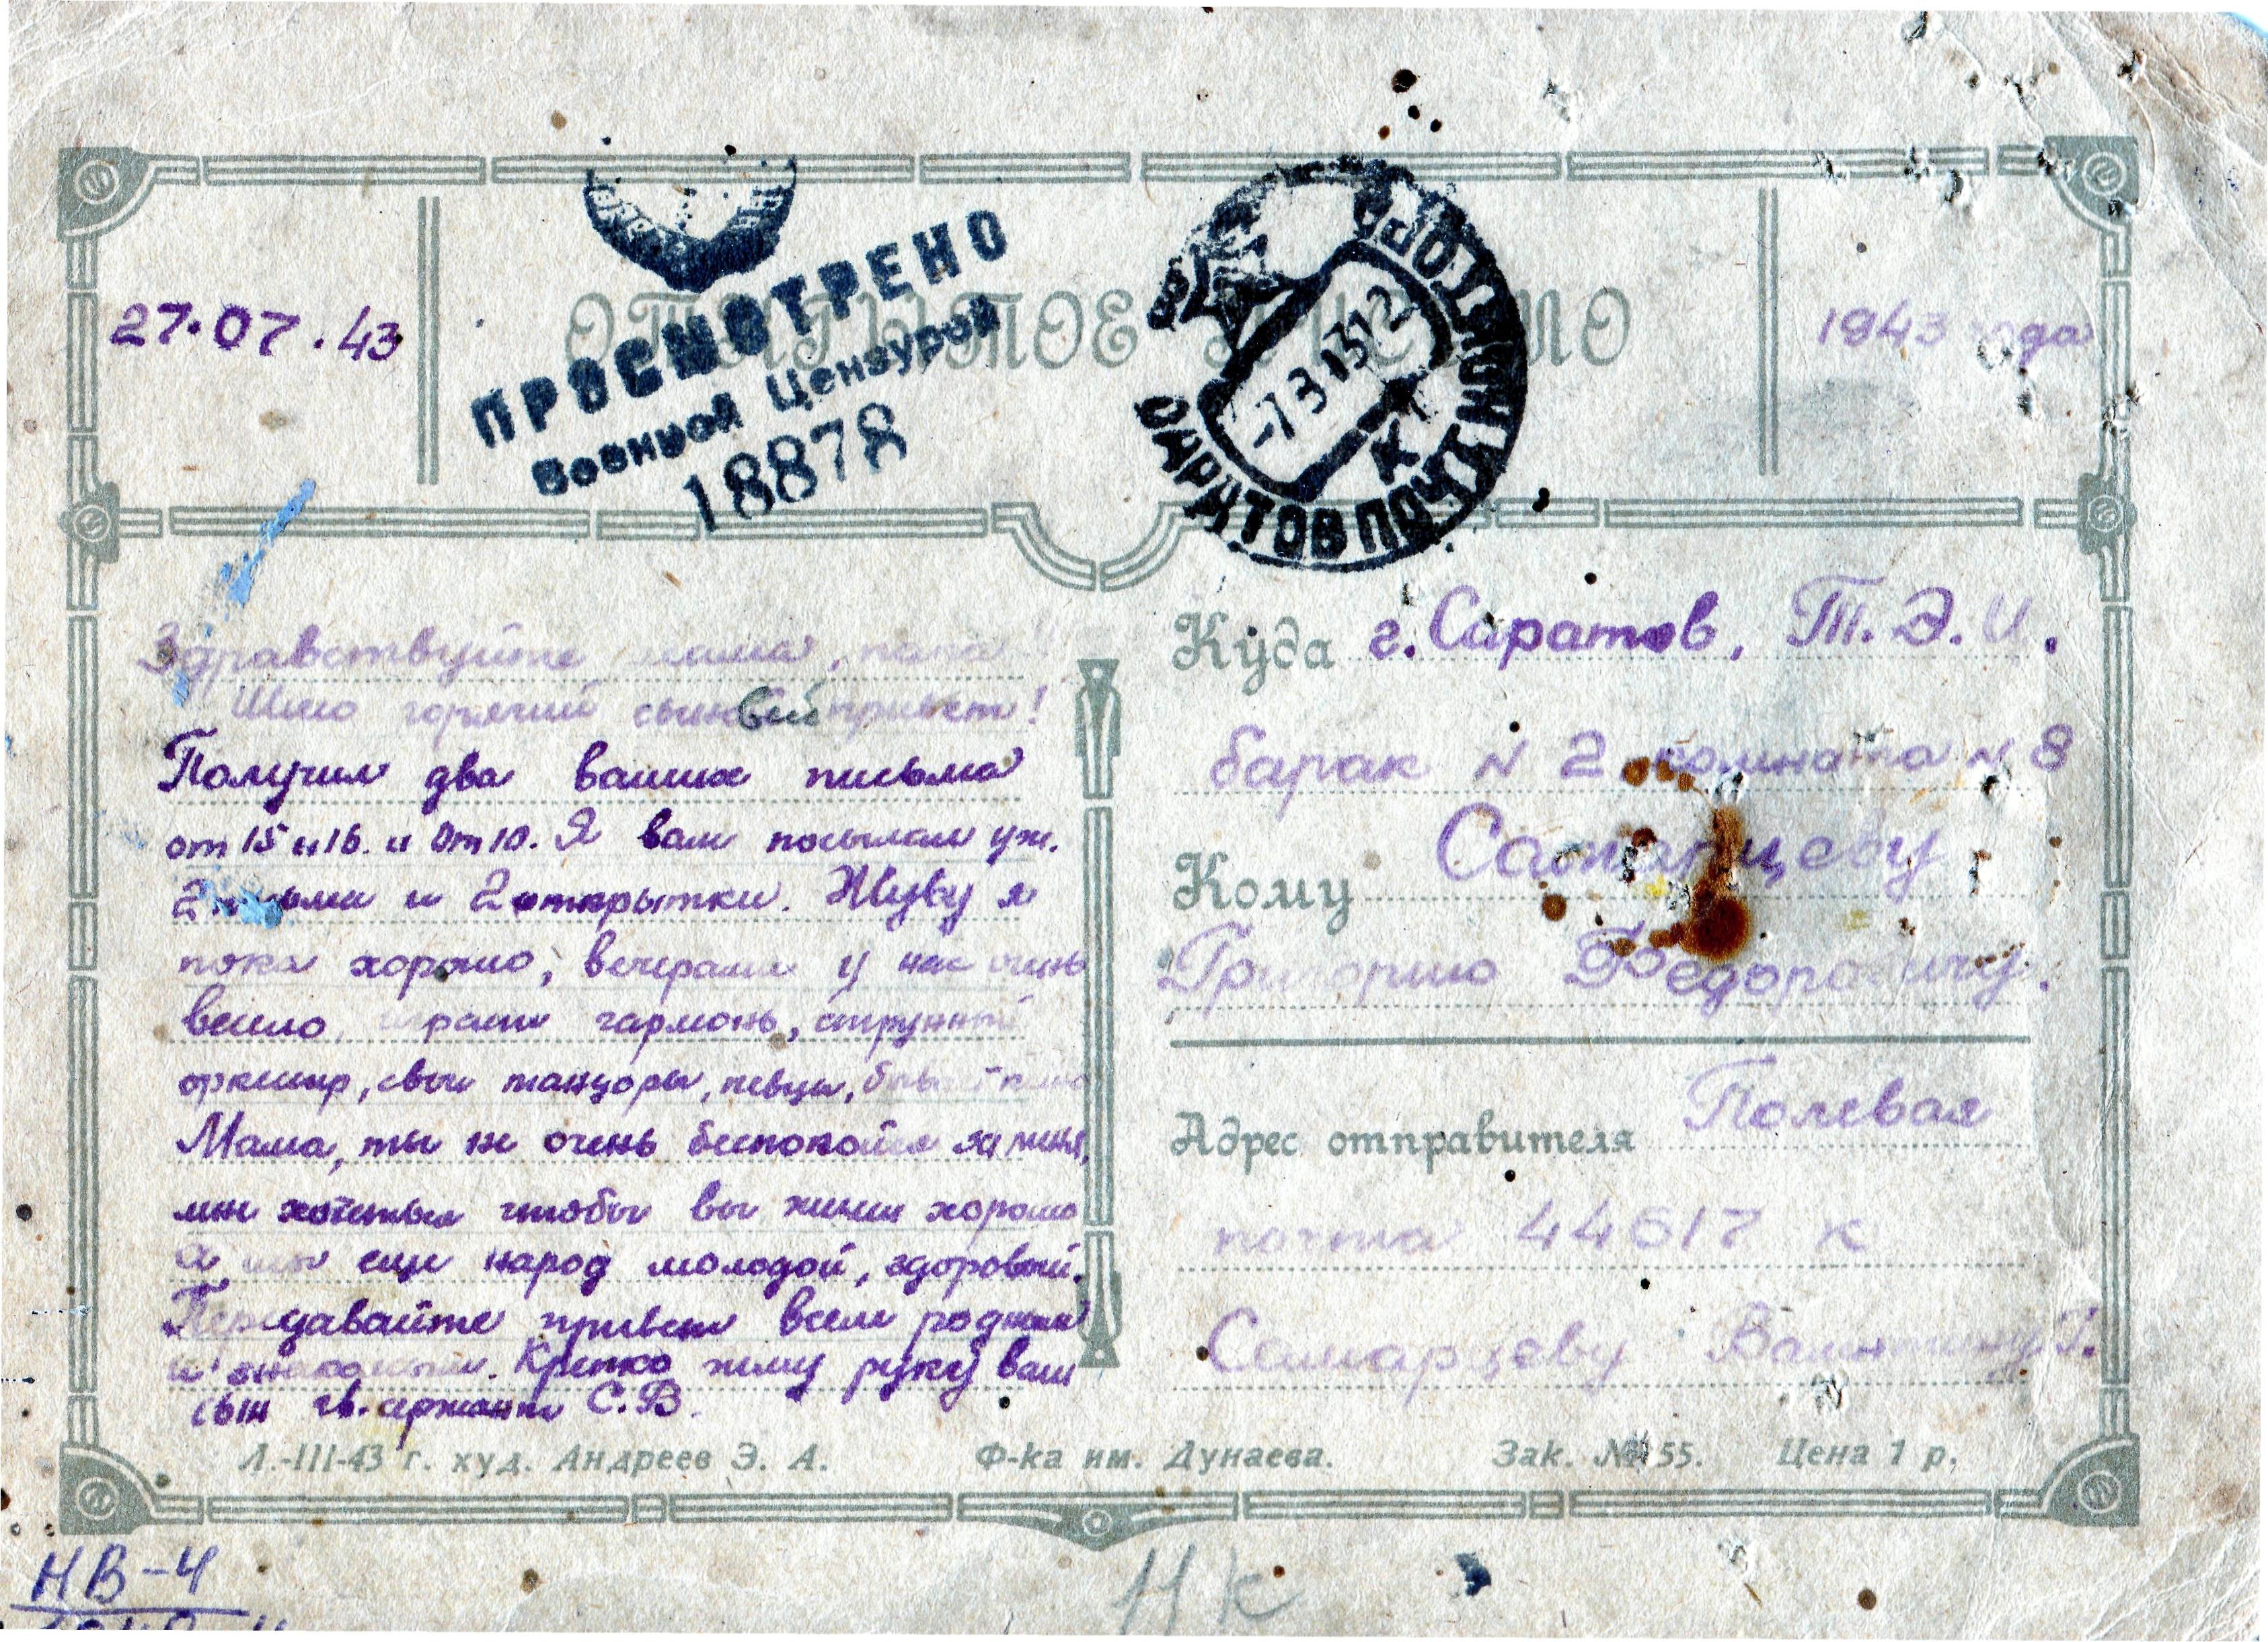 27.07.43
ОТКРЫТОЕ ПИСЬМО
1943 года
ПРОСМОТРЕНО
Военной Цензурой
18878
САРАТОВ ПОЧТАМТ
К
Здравствуйте мама, папа!!
Шлю горячий сыновий привет!
Получил два ваших письма
от 15 и 16. и от 10. Я вам посылал уж.
2 письма и 2 открытки. Живу я
пока хорошо, вечерами у нас очень
весело, играет гармонь, струнный
оркестр, свои танцоры, певцы, бывает кино
Мама, ты не очень беспокойся за меня,
мне хотелося чтобы вы жили хорошо
а мы еще народ молодой, здоровый.
Передавайте привет всем родным
и знакомым. Крепко жму руку ваш
сын гв. сержант С.В.
Куда г. Саратов, Т.Э.И.
барак N 2 комната N 8
Кому Самарцеву
Григорию Федоровичу.
Адрес отправителя Полевая
почта 44617 к
Самарцеву Валентину Г.
Л.-III-43 г. худ. Андреев Э. А. Ф-ка им. Дунаева. Зак. № 155. Цена 1 р.
НВ-4
НК